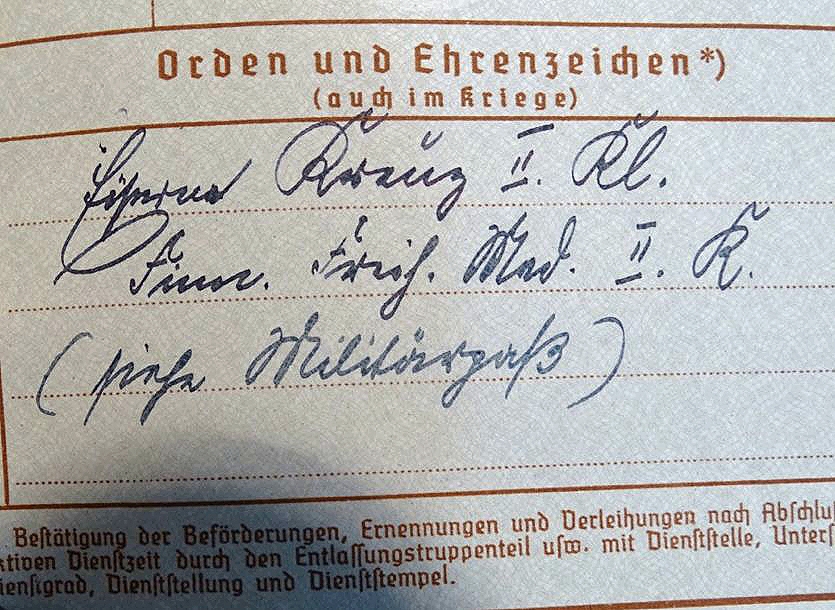 Orden und Ehrenzeichen*)
(auch im Kriege)
Eiserne Kreuz II. Kl.
Finn. Freih. Med. II. K.
(siehe Militärpaß)
Bestätigung der Beförderungen, Ernennungen und Verleihungen nach Abschlu
ktiven Dienstzeit durch den Entlassungstruppenteil usw. mit Dienststelle, Unters
ienstgrad, Dienststellung und Dienststempel.